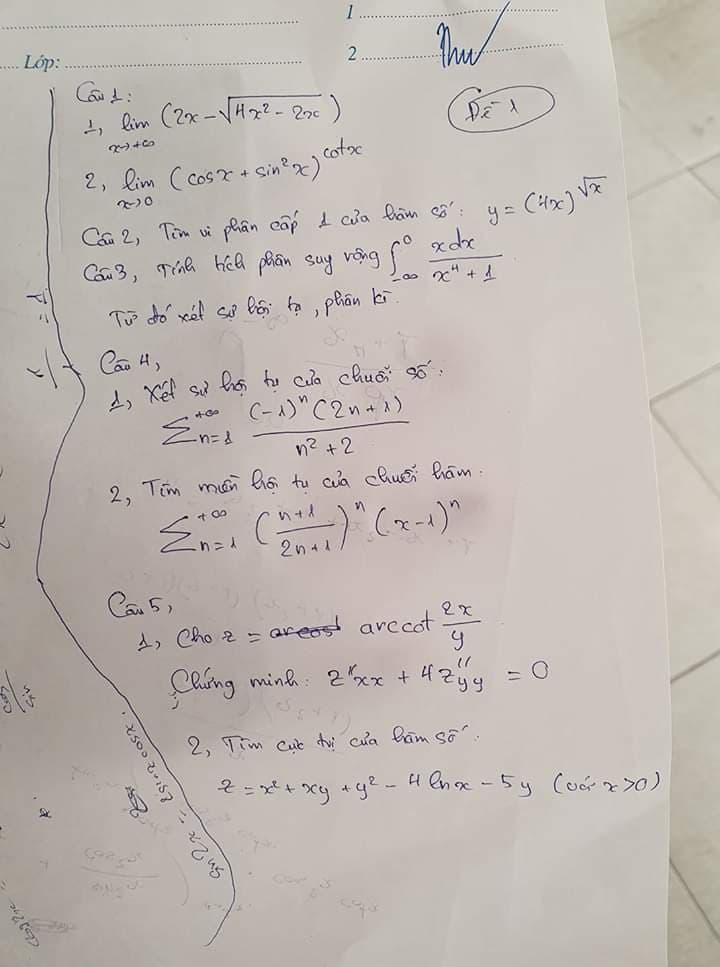 1
Lớp:
2
Đề 1
Câu 1:
1, lim x→+∞ (2x - √(4x² - 2x))
2, lim x→0 (cosx + sin²x)^cotx
Câu 2, Tìm vi phân cấp 1 của hàm số: y = (4x)^√x
Câu 3, Tính tích phân suy rộng ∫_{-∞}^{0} xdx / (x⁴ + 1)
Từ đó xét sự hội tụ, phân kì.
Câu 4,
1, Xét sự hội tụ của chuỗi số:
∑_{n=1}^{+∞} (-1)ⁿ(2n+1) / (n² + 2)
2, Tìm miền hội tụ của chuỗi hàm:
∑_{n=1}^{+∞} ((n+1)/(2n+1))ⁿ (x-1)ⁿ
Câu 5,
1, Cho z = arccot 2x/y
Chứng minh: z''xx + 4z''yy = 0
2, Tìm cực trị của hàm số:
z = x² + xy + y² - 4lnx - 5y (với x>0)
sin2x = 2sinx cosx.